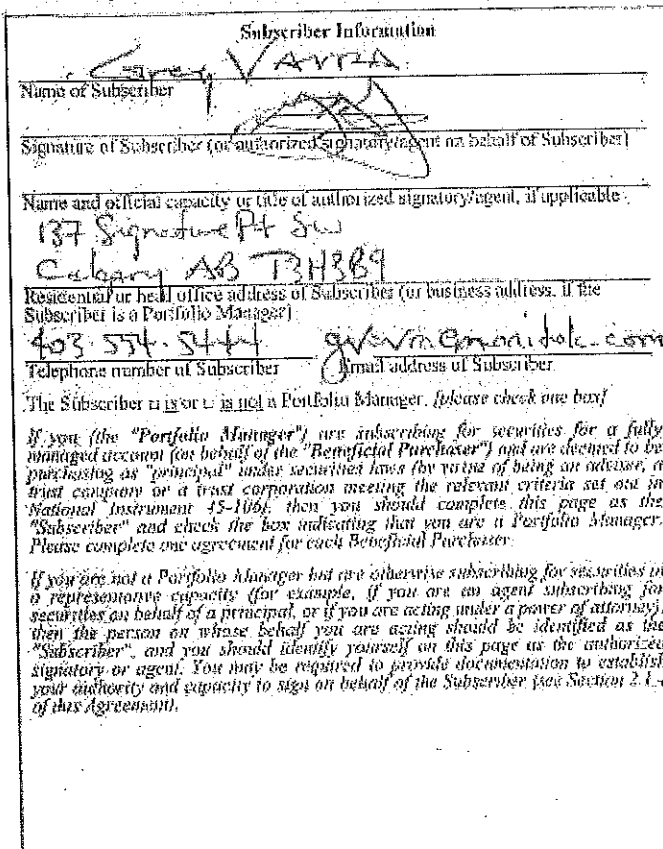 Subscriber Information
Name of Subscriber
Signature of Subscriber (or authorized signatory/agent on behalf of Subscriber)
Name and official capacity or title of authorized signatory/agent, if applicable
137 Signature Pt SW
Calgary AB T3H3B9
Residential or head office address of Subscriber (or business address, if the
Subscriber is a Portfolio Manager)
403.554.5444
Telephone number of Subscriber Email address of Subscriber
The Subscriber □ is or □ is not a Portfolio Manager. [please check one box]
If you (the "Portfolio Manager") are subscribing for securities for a fully
managed account (on behalf of the "Beneficial Purchaser") and are deemed to be
purchasing as "principal" under securities laws (by virtue of being an adviser, a
trust company or a trust corporation meeting the relevant criteria set out in
National Instrument 45-106), then you should complete this page as the
"Subscriber" and check the box indicating that you are a Portfolio Manager.
Please complete one agreement for each Beneficial Purchaser.
If you are not a Portfolio Manager but are otherwise subscribing for securities in
a representative capacity (for example, if you are an agent subscribing for
securities on behalf of a principal, or if you are acting under a power of attorney),
then the person on whose behalf you are acting should be identified as the
"Subscriber", and you should identify yourself on this page as the authorized
signatory or agent. You may be required to provide documentation to establish
your authority and capacity to sign on behalf of the Subscriber (see Section
of this Agreement).